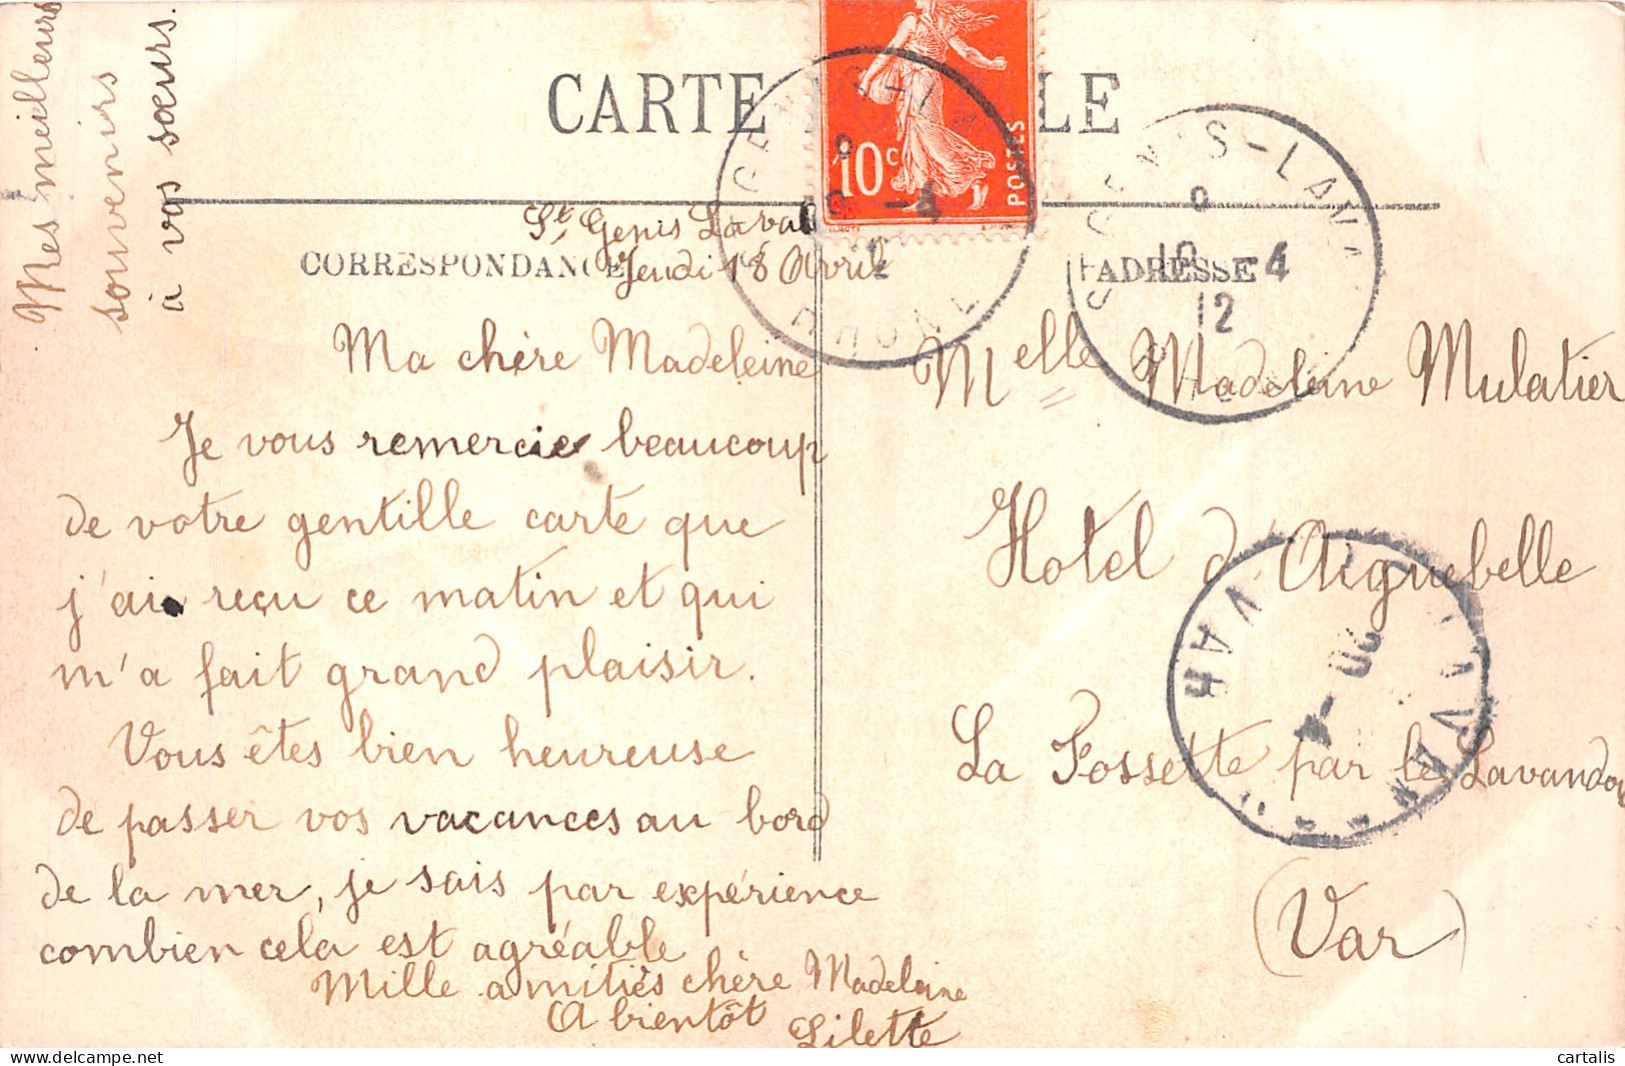 Mes meilleurs
souvenirs
à vos sœurs.
CARTE
LE
10c
POSTES
RHONE
S-LAVAL
4
12
CORRESPONDANCE
ADRESSE
St Genis Laval
Jeudi 18 Avril
Ma chère Madeleine
Je vous remercie beaucoup
de votre gentille carte que
j'ai reçu ce matin et qui
m'a fait grand plaisir.
Vous êtes bien heureuse
de passer vos vacances au bord
de la mer, je sais par expérience
combien cela est agréable
Mille amitiés chère Madeleine
A bientôt
Lilette
Melle Madeleine Mulatier
Hotel d'Aiguebelle
La Fossette par le Lavandou
(Var)
VAR
cartalis
www.delcampe.net